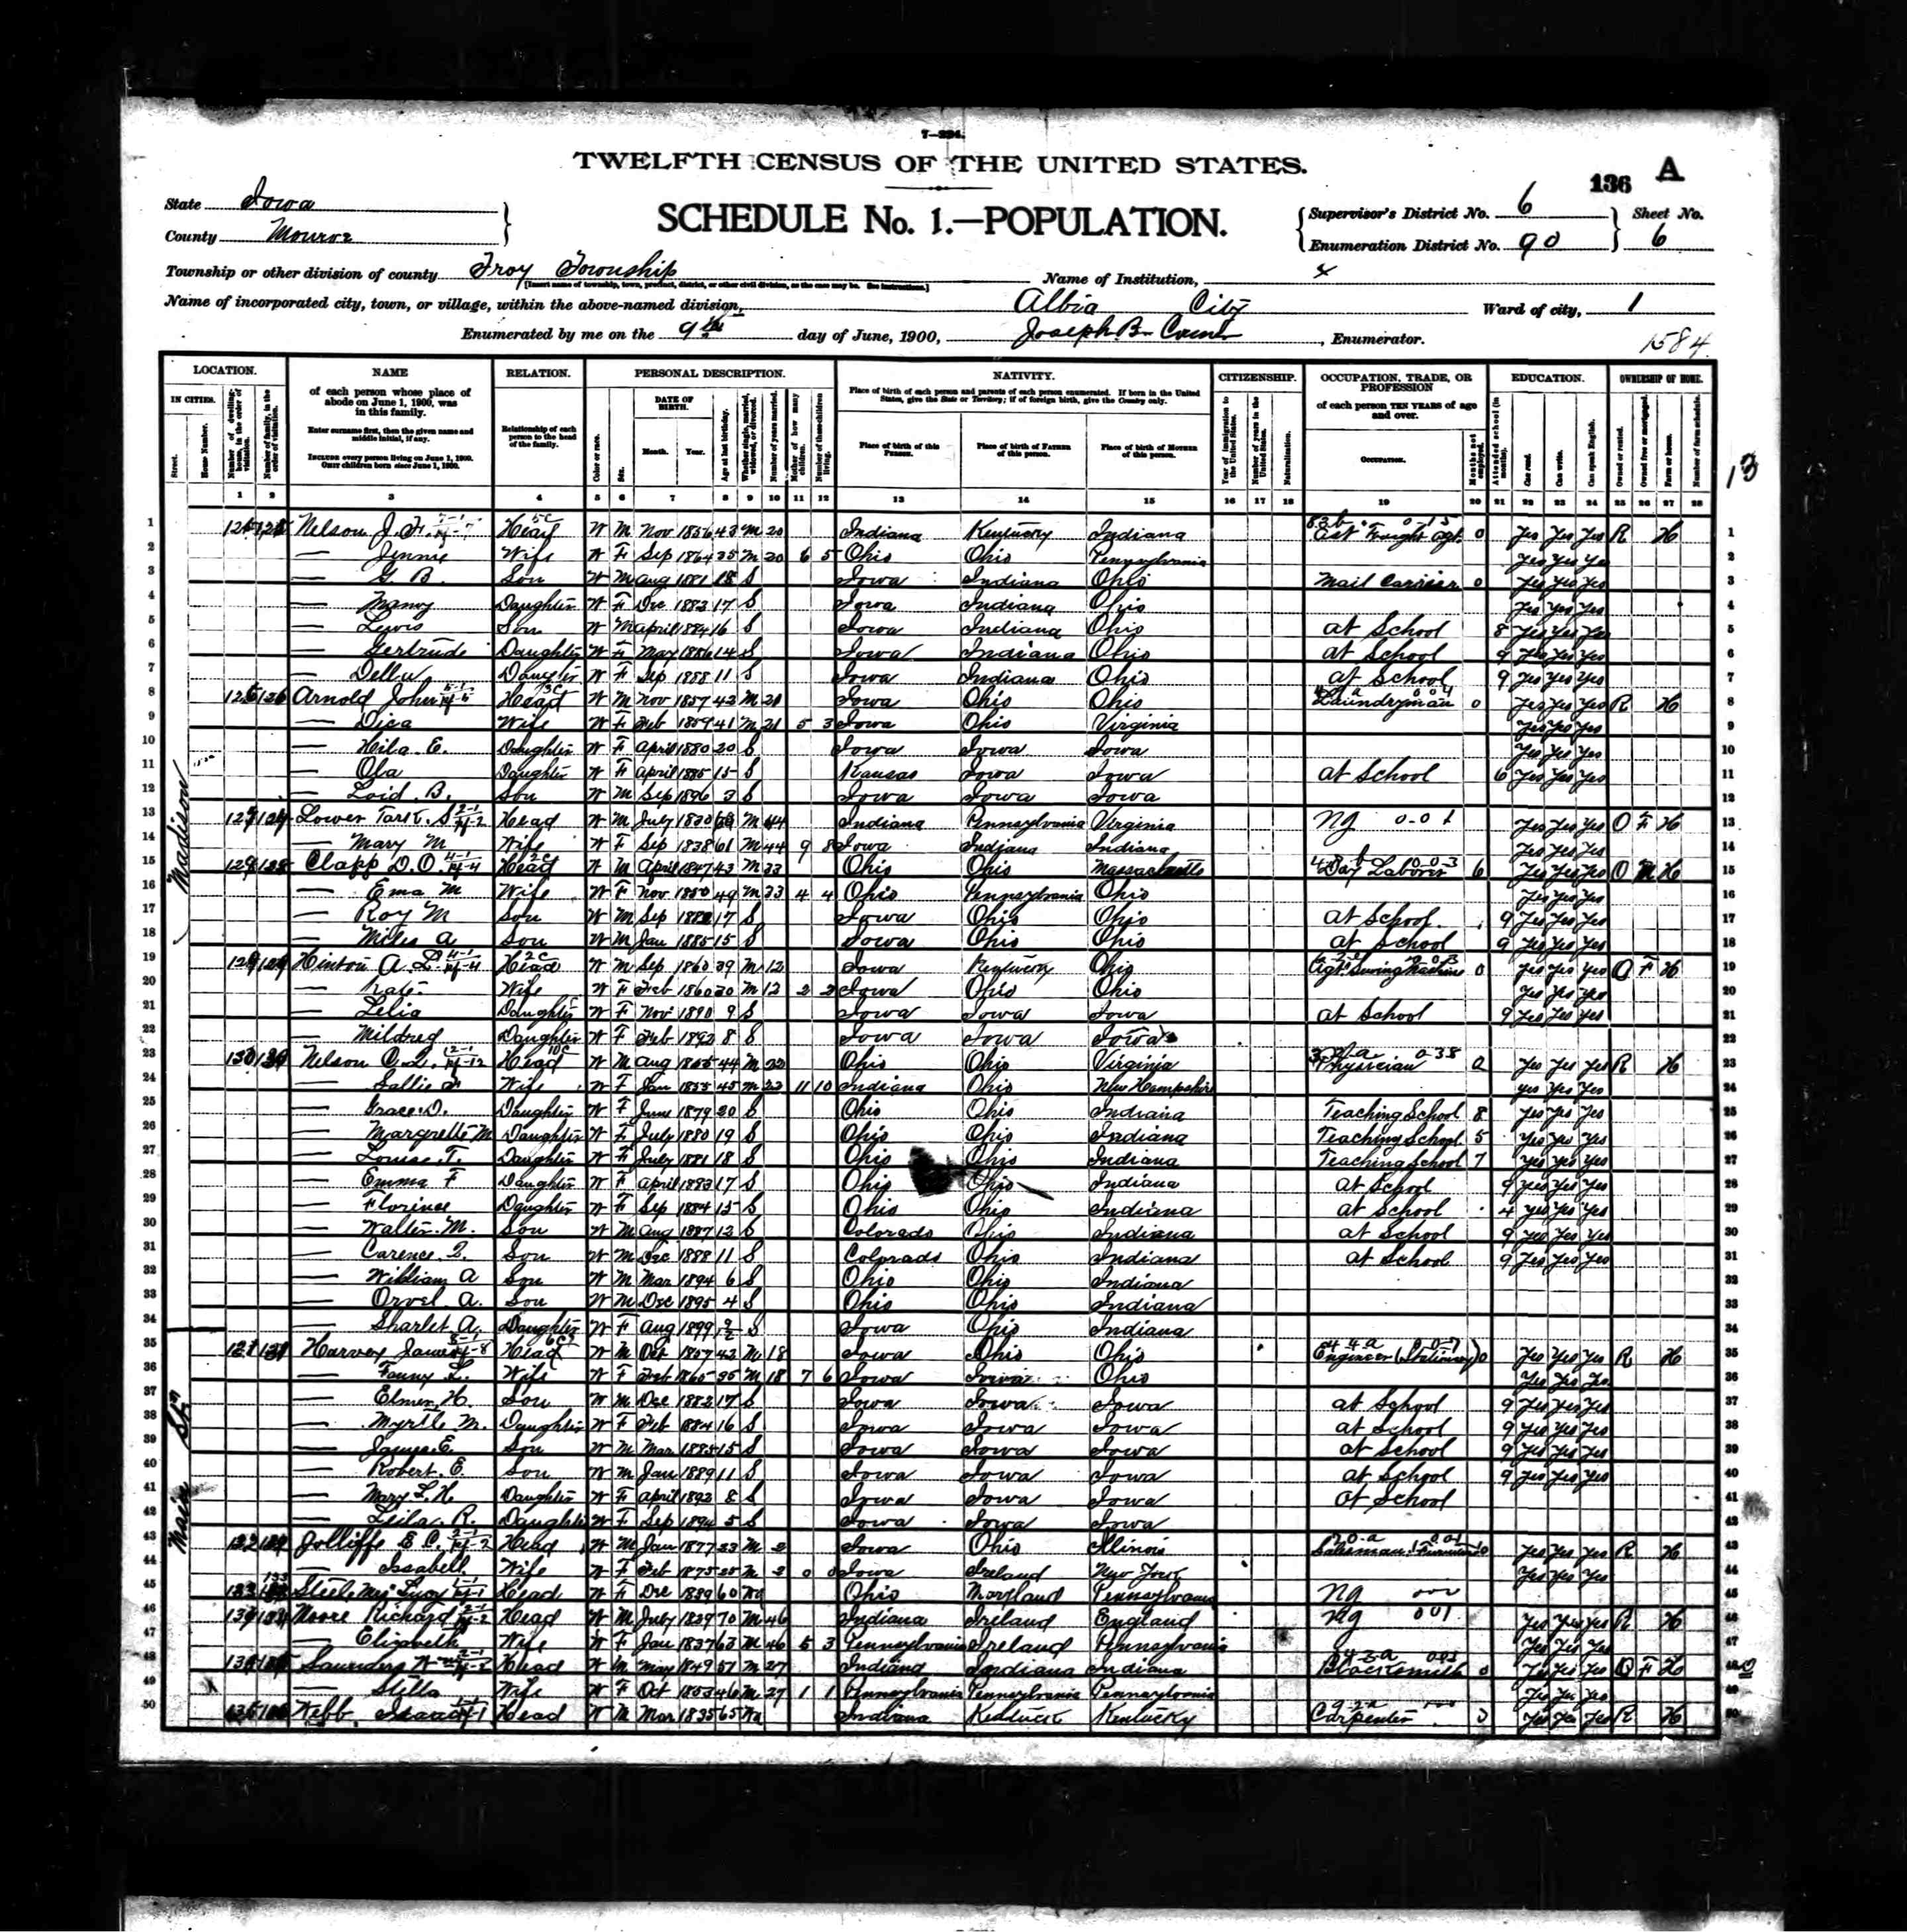 7—224.
TWELFTH CENSUS OF THE UNITED STATES.
136 A
State Iowa
County Monroe
SCHEDULE No. 1.—POPULATION.
Supervisor's District No. 6
Enumeration District No. 90
Sheet No.
6
Township or other division of county Troy Township
[Insert name of township, town, precinct, district, or other civil division, as the case may be. See instructions.]
Name of Institution, x
Name of incorporated city, town, or village, within the above-named division, Albia City
Ward of city, 1
Enumerated by me on the 9th day of June, 1900, Joseph B. , Enumerator.
1584
13
LOCATION. NAME RELATION. PERSONAL DESCRIPTION. NATIVITY. CITIZENSHIP. OCCUPATION, TRADE, OR PROFESSION EDUCATION. OWNERSHIP OF HOME.
IN CITIES. of each person whose place of abode on June 1, 1900, was in this family.
Enter surname first, then the given name and middle initial, if any.
INCLUDE every person living on June 1, 1900. OMIT children born since June 1, 1900.
Relationship of each person to the head of the family.
DATE OF BIRTH. Month. Year.
Place of birth of each person and parents of each person enumerated. If born in the United States, give the State or Territory; if of foreign birth, give the Country only.
Place of birth of this PERSON. Place of birth of FATHER of this person. Place of birth of MOTHER of this person.
of each person TEN YEARS of age and over.
OCCUPATION.
1 2 3 4 5 6 7 8 9 10 11 12 13 14 15 16 17 18 19 20 21 22 23 24 25 26 27 28
1 Nelson J. Head W M Nov 1856 43 M 20 Indiana Kentucky Indiana Freight Agt. 0 Yes Yes Yes R H 1
2 — Jennie Wife W F Sep 1864 35 M 20 6 5 Ohio Ohio Pennsylvania Yes Yes Yes 2
3 — G. B. Son W M Aug 1881 18 S Iowa Indiana Ohio Mail Carrier 0 Yes Yes Yes 3
4 — Daughter W F Dec 1882 17 S Iowa Indiana Ohio Yes Yes Yes 4
5 — Lewis Son W M April 1884 16 S Iowa Indiana Ohio at School 8 Yes Yes Yes 5
6 — Gertrude Daughter W F May 1886 14 S Iowa Indiana Ohio at School 9 Yes Yes Yes 6
7 — Daughter W F Sep 1888 11 S Iowa Indiana Ohio at School 9 Yes Yes Yes 7
8 126 126 Arnold John Head W M Nov 1857 42 M 21 Iowa Ohio Ohio Laundryman 0 Yes Yes Yes R H 8
9 — Dica Wife W F Feb 1859 41 M 21 5 3 Iowa Ohio Virginia Yes Yes Yes 9
10 — Hila E. Daughter W F April 1880 20 S Iowa Iowa Iowa Yes Yes Yes 10
11 — Ola Daughter W F April 1885 15 S Kansas Iowa Iowa at School 6 Yes Yes Yes 11
12 — Loid B. Son W M Sep 1896 3 S Iowa Iowa Iowa 12
13 127 Head W M July 1830 M 44 Indiana Pennsylvania Virginia Ng Yes Yes Yes O F H 13
14 — Mary M Wife W F Sep 1838 61 M 44 9 8 Iowa Indiana Indiana Yes Yes Yes 14
15 128 Clapp D. O. Head W M April 1847 43 M 23 Ohio Ohio Massachusetts Day Laborer 6 Yes Yes Yes O M H 15
16 — Ema M Wife W F Nov 1850 49 M 23 4 4 Ohio Pennsylvania Ohio Yes Yes Yes 16
17 — Roy M Son W M Sep 1882 17 S Iowa Ohio Ohio at School 9 Yes Yes Yes 17
18 — Miles A Son W M Jan 1885 15 S Iowa Ohio Ohio at School 9 Yes Yes Yes 18
19 129 Hinton A. L. Head W M Sep 1860 39 M 12 Iowa Kentucky Ohio Agt. Sewing Machine 0 Yes Yes Yes O F H 19
20 — Kate Wife W F Feb 1860 M 12 2 2 Iowa Ohio Ohio Yes Yes Yes 20
21 — Lelia Daughter W F Nov 1890 9 S Iowa Iowa Iowa at School 9 Yes Yes Yes 21
22 — Mildred Daughter W F Feb 1892 8 S Iowa Iowa Iowa 22
23 130 Nelson Head W M Aug 1855 44 M 22 Ohio Ohio Virginia Physician 0 Yes Yes Yes R H 23
24 — Sallie Wife W F Jan 1855 45 M 22 11 10 Indiana Ohio New Hampshire Yes Yes Yes 24
25 — Grace D. Daughter W F June 1879 20 S Ohio Ohio Indiana Teaching School 8 Yes Yes Yes 25
26 — Margrette M Daughter W F July 1880 19 S Ohio Ohio Indiana Teaching School 5 Yes Yes Yes 26
27 — Louise T. Daughter W F July 1881 18 S Ohio Ohio Indiana Teaching School 7 Yes Yes Yes 27
28 — Emma F Daughter W F April 1883 17 S Ohio Ohio Indiana at School 9 Yes Yes Yes 28
29 — Florince Daughter W F Sep 1884 15 S Ohio Ohio Indiana at School 4 Yes Yes Yes 29
30 — Walter M. Son W M Aug 1887 12 S Colorado Ohio Indiana at School 9 Yes Yes Yes 30
31 — Carence Son W M Dec 1888 11 S Colorado Ohio Indiana at School 9 Yes Yes Yes 31
32 — William A Son W M Mar 1894 6 S Ohio Ohio Indiana 32
33 — Orvel A. Son W M Dec 1895 4 S Ohio Ohio Indiana 33
34 — Sharlet A. Daughter W F Aug 1899 S Iowa Ohio Indiana 34
35 131 Harvey James Head W M Oct 1857 42 M 18 Iowa Ohio Ohio Engineer (Stationary) 0 Yes Yes Yes R H 35
36 — Fanny L. Wife W F Feb 1865 35 M 18 7 6 Iowa Iowa Ohio Yes Yes Yes 36
37 — Elmer H. Son W M Dec 1882 17 S Iowa Iowa Iowa at School 9 Yes Yes Yes 37
38 — Myrtle M. Daughter W F Feb 1884 16 S Iowa Iowa Iowa at School 9 Yes Yes Yes 38
39 — James E. Son W M Mar 1885 15 S Iowa Iowa Iowa at School 9 Yes Yes Yes 39
40 — Robert E. Son W M Jan 1889 11 S Iowa Iowa Iowa at School 9 Yes Yes Yes 40
41 — Mary L. H. Daughter W F April 1892 8 S Iowa Iowa Iowa at School 41
42 — Leila R. Daughter W F Sep 1894 5 S Iowa Iowa Iowa 42
43 132 Jolliffe E C. Head W M Jan 1877 23 M 2 Iowa Ohio Illinois Salesman 0 Yes Yes Yes R H 43
44 — Isabell Wife W F Feb 1875 25 M 2 0 0 Iowa Ireland New York Yes Yes Yes 44
45 133 Steele Mrs Head W F Dec 1839 60 Wd Ohio Maryland Pennsylvania Ng 45
46 134 Moore Richard Head W M July 1839 70 M 46 Indiana Ireland England Ng Yes Yes Yes R H 46
47 — Elizabeth Wife W F Jan 1837 63 M 46 5 3 Pennsylvania Ireland Pennsylvania Yes Yes Yes 47
48 Saunders Wm Head W M May 1849 51 M 27 Indiana Indiana Indiana Blacksmith 0 Yes Yes Yes O F H 48
49 — Stilla Wife W F Oct 1853 46 M 27 1 1 Pennsylvania Pennsylvania Pennsylvania Yes Yes Yes 49
50 Webb Isaac Head W M Mar 1835 65 Wd Indiana Kentucky Carpenter Yes Yes Yes R H 50
Madison
Main St